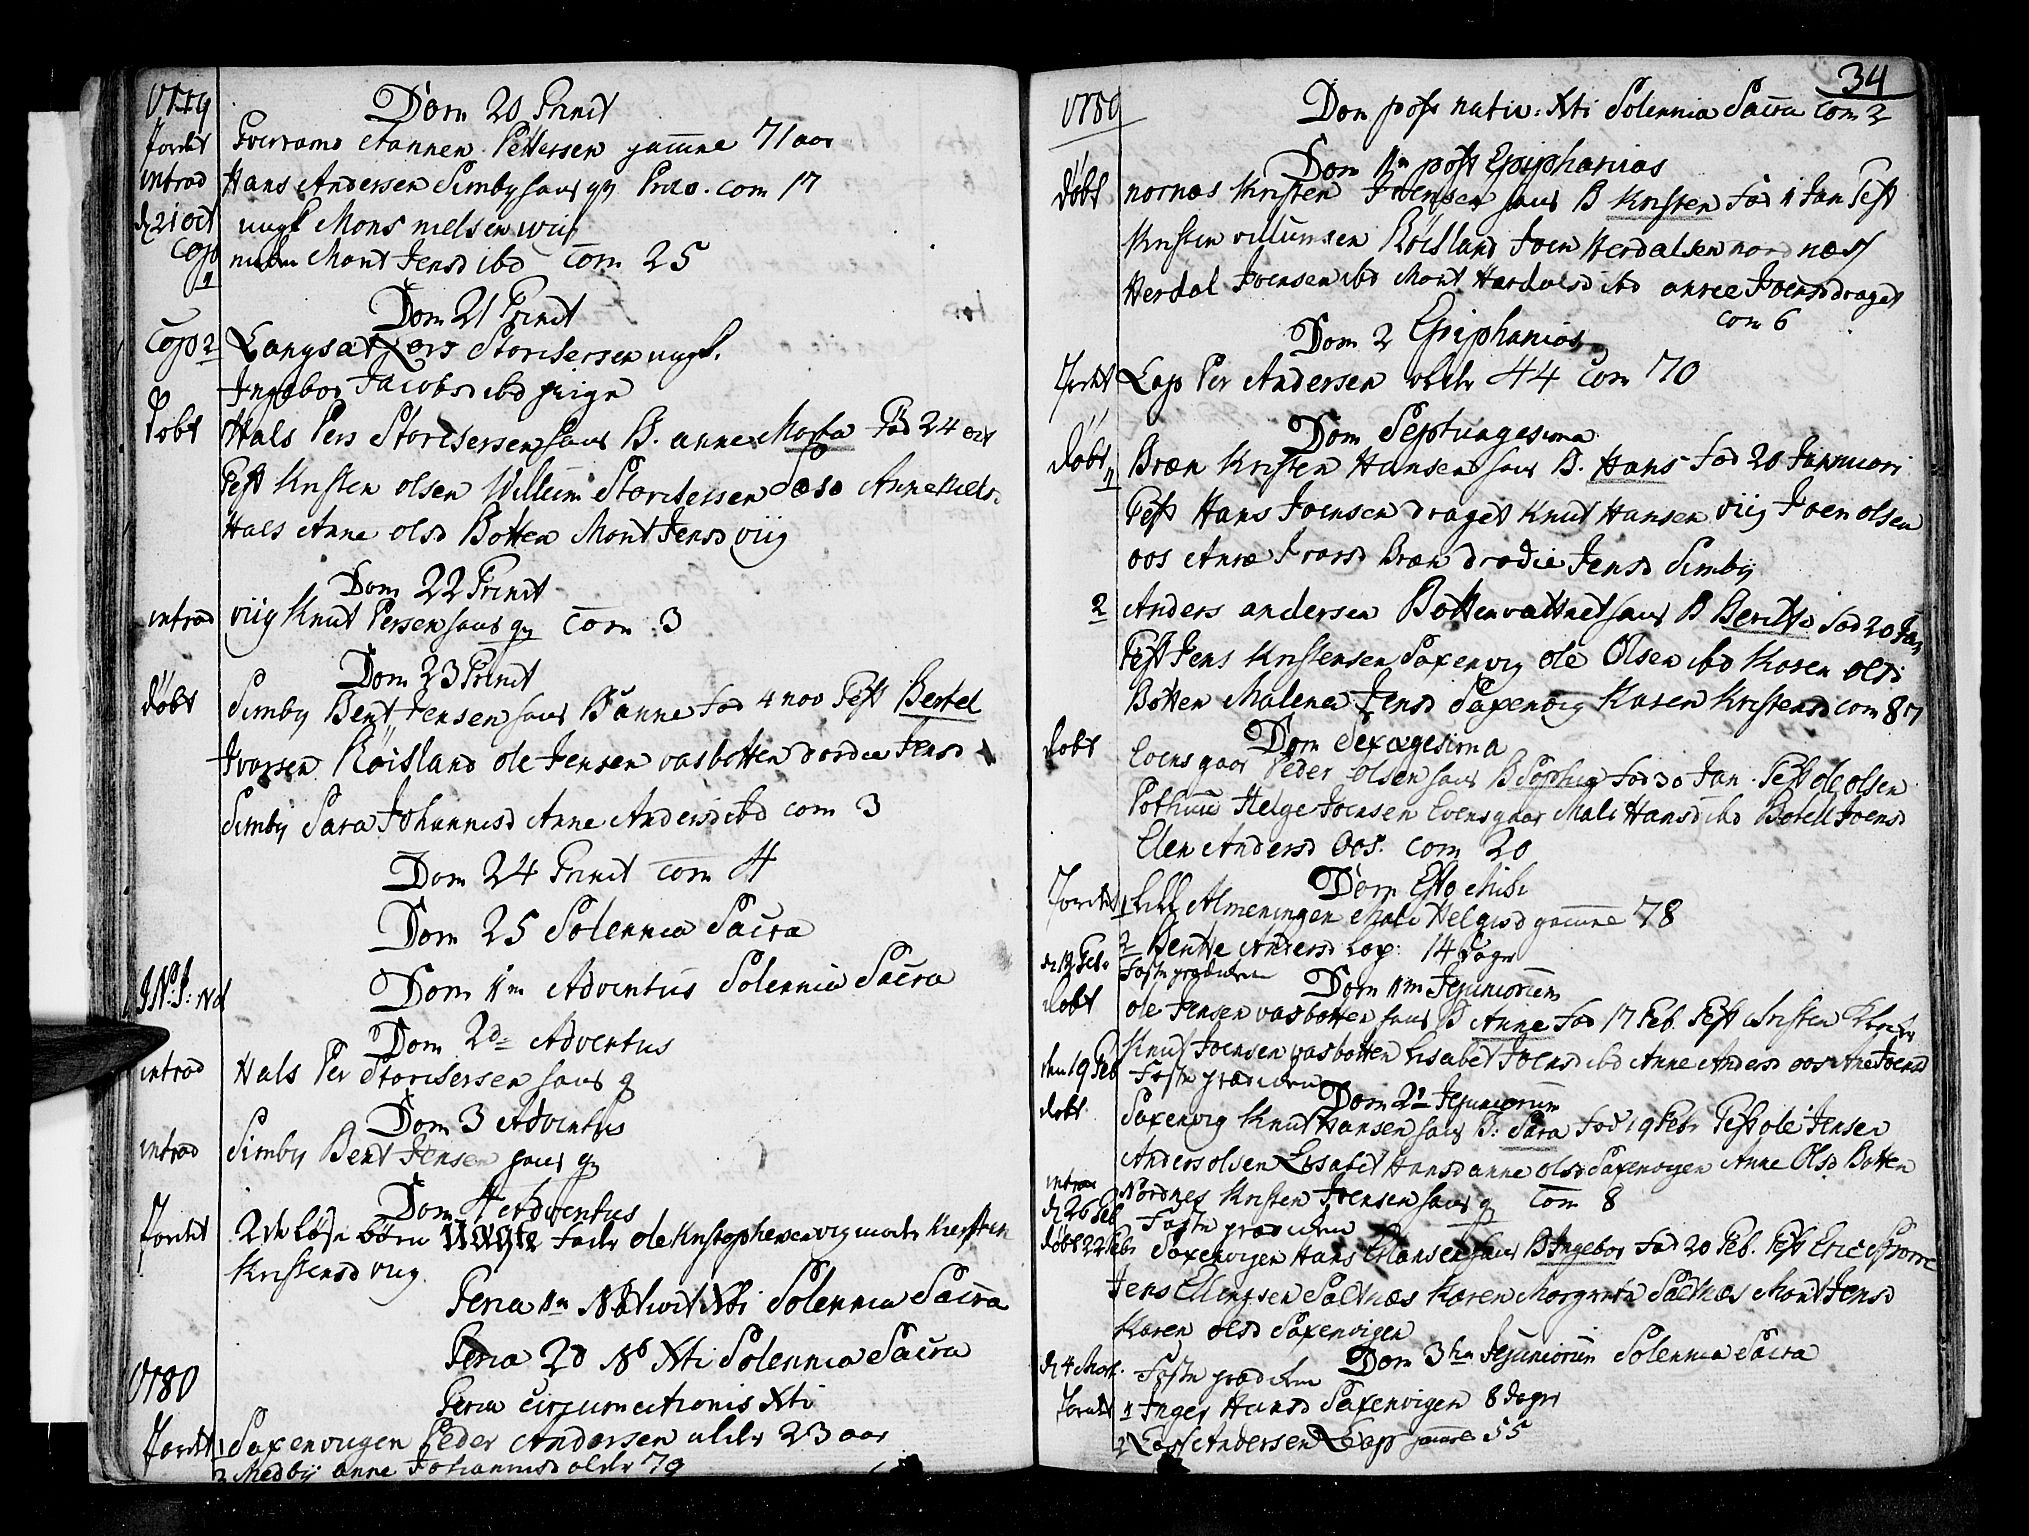 1779
Dom 20 Trinit
Jordet
Hannen Pettersen gamme 71 aar
introd
Hans Andersen Simby haus q Præs. com 17
d 21 oct
ungk Mons nielsen viig
Cop 1
Mont Jensd ibd com 25
Dom 21 Trinit
Cop 2
Langsat Lars Storchersen ungk.
Ingebor Jacobsd ibd piige
døbt
Hals Pers Storchersen haus B. anne Marta Fød 24 oct
Test Kristen olsen Willum Storchersen Anne Niels
Hals Anne olsd Botten Mont Jensd viig
Dom 22 Trinit
introd
viig Knut Persen haus q com 3
Dom 23 Trinit
døbt
Simby Bent Jensen haus B anne Fød 4 nov Test Bertel
Ivarsen Røisland ole Jensen vasbotten dordie Jensd
Simby Sara Johannisd Anne Andersd ibd com 3
Dom 24 Trinit com 4
Dom 25 Solennia Sacra
J.N.J:
Dom 1m Adventus Solennia Sacra
Dom 2d Adventus
introd
Hals Per Storchersen haus q
Dom 3 Adventus
introd
Simby Bent Jensen haus q
Dom 4 Adventus
Jordet
2 børn Fader ole Kristophersen viig moder Kiersten
Kristensd viig
Feria 1m Nativit Xti Solennia Sacra
Feria 2d Xti Solennia Sacra
1780
Feria circumcitionis Xti
Jordet
1 Saxenvigen Peder Andersen alder 23 aar
2 Medby anne Johannisd alder 70
34
1780
Dom post nativ: Xti Solennia Sacra com 2
Dom 1m post Epiphanias
døbt
nornæs Kristen Joensen haus B Kristen Fød 11 Jan Test
Kristen Røisland Joen Herdalsen nord næss
Herdal Joensen ibd Mont Herdalsd ibd Joensd draget
com 6
Dom 2 Epiphanias
Jordet
Lap Per Andersen alder 44 com 70
Dom Septuagesima
døbt 1
Bræn Kristen Hansen haus B. Hans Fød 20 Januari
Test Hans Joensen draget Knut Hansen viig Joen olsen
oos Ivarsd Bræn Jensd Simby
2
Anders andersen Bottenvattnet haus B Fød 20 Jan
Test Jens Kristensen Saxenvig ole Olsen ibd Karen olsd
Botten Malena Jensd Saxenvig Karen Kristensd com 87
døbt
Dom Sexagesima
Evensgaar Peder olsen haus B Sophia Fød 30 Jan. Test ole olsen
Helge Joensen Evensgaar Mali Hansd ibd Botell Joensd
Elen Andersd Oos. com 20
Dom Esto Mihi
Jordet
1 Lill Almeningen Mali Helgisd gamme 78
2 Andersd Lap: 14 dage
Faste prædiken
Dom 1m Jejuniorum
døbt
ole Jensen vasbotten haus B Anne Fød 17 Feb. Test
Knut Joensen vasbotten Lisabet Joensd ibd Anne Andersd oos Ane Joensd
19 Feb
Faste prædiken
Dom 2 Jejuniorum
døbt
Saxenvig Knut Hansen haus B: Sara Fød 19 Febr Test ole Jensen
Anders olsen Lisabet Hansd anne olsd Saxenvigen Anne Olsd Botten
introd
Nordnes Kristen Joensen haus q com 8
d 26 Feb
Faste prædiken
døbt 22 Febr
Saxenvigen Hans Hansen haus B Ingebor Fød 20 Feb. Test
Jens Ellingsen Saltnæs Karen Margreta Saltnæs Mont Jensd
Karen olsd Saxenvigen
Dom 3tia Jejuniorum Solennia Sacra
d 4 Mart.
Faste prædiken
Jordet
1 Inger Hansd Saxenvigen 8 dage
2 Andersen Lap gamme 55